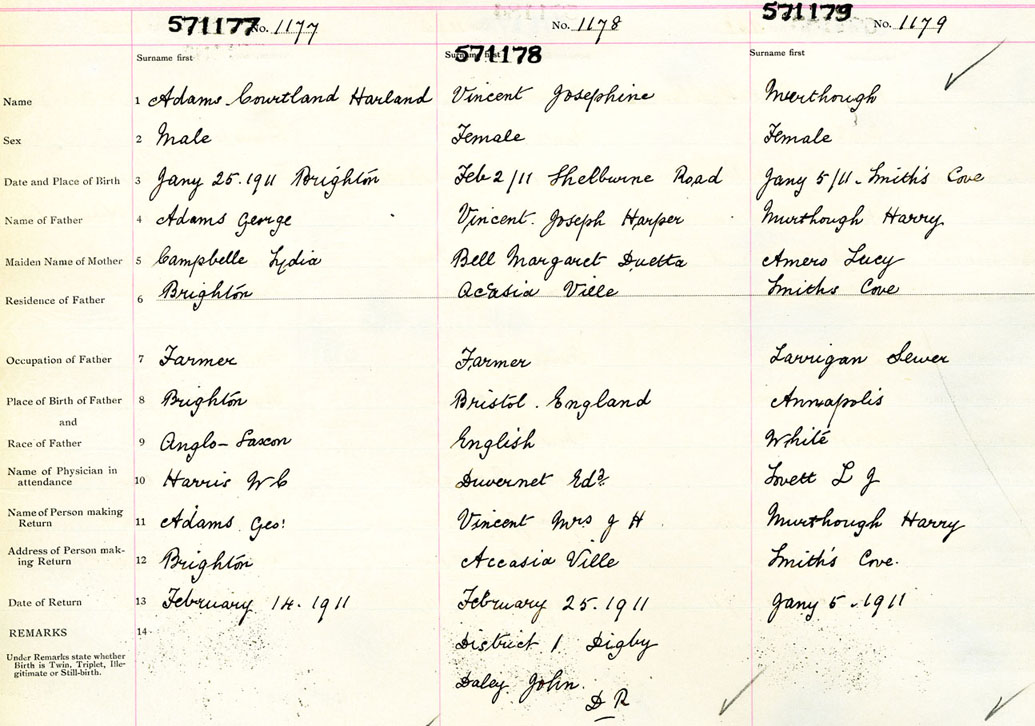 571177 No. 1177 No. 1178 571179 No. 1179
Surname first 571178 Surname first
Name 1 Adams Courtland Harland Vincent Josephine Murthough
Sex 2 Male Female Female
Date and Place of Birth 3 Jany 25. 1911 Brighton Feb 2/11 Shelburne Road Jany 5/11 - Smith's Cove
Name of Father 4 Adams George Vincent. Joseph Harper Murthough Harry
Maiden Name of Mother 5 Campbelle Lydia Bell Margaret Duetta Amero Lucy
Residence of Father 6 Brighton Acasia Ville Smiths Cove
Occupation of Father 7 Farmer Farmer Larrigan Sewer
Place of Birth of Father 8 Brighton Bristol. England Annapolis
and
Race of Father 9 Anglo-Saxon English White
Name of Physician in
attendance 10 Harris W C Duvernet Edd Lovett L J
Name of Person making
Return 11 Adams Geo: Vincent Mrs J H Murthough Harry
Address of Person mak-
ing Return 12 Brighton Accasia Ville Smith's Cove.
Date of Return 13 February 14. 1911 February 25. 1911 Jany 5. 1911
REMARKS 14 District 1 Digby
Under Remarks state whether
Birth is Twin, Triplet, Ille-
gitimate or Still-birth.
Daley John.
D R